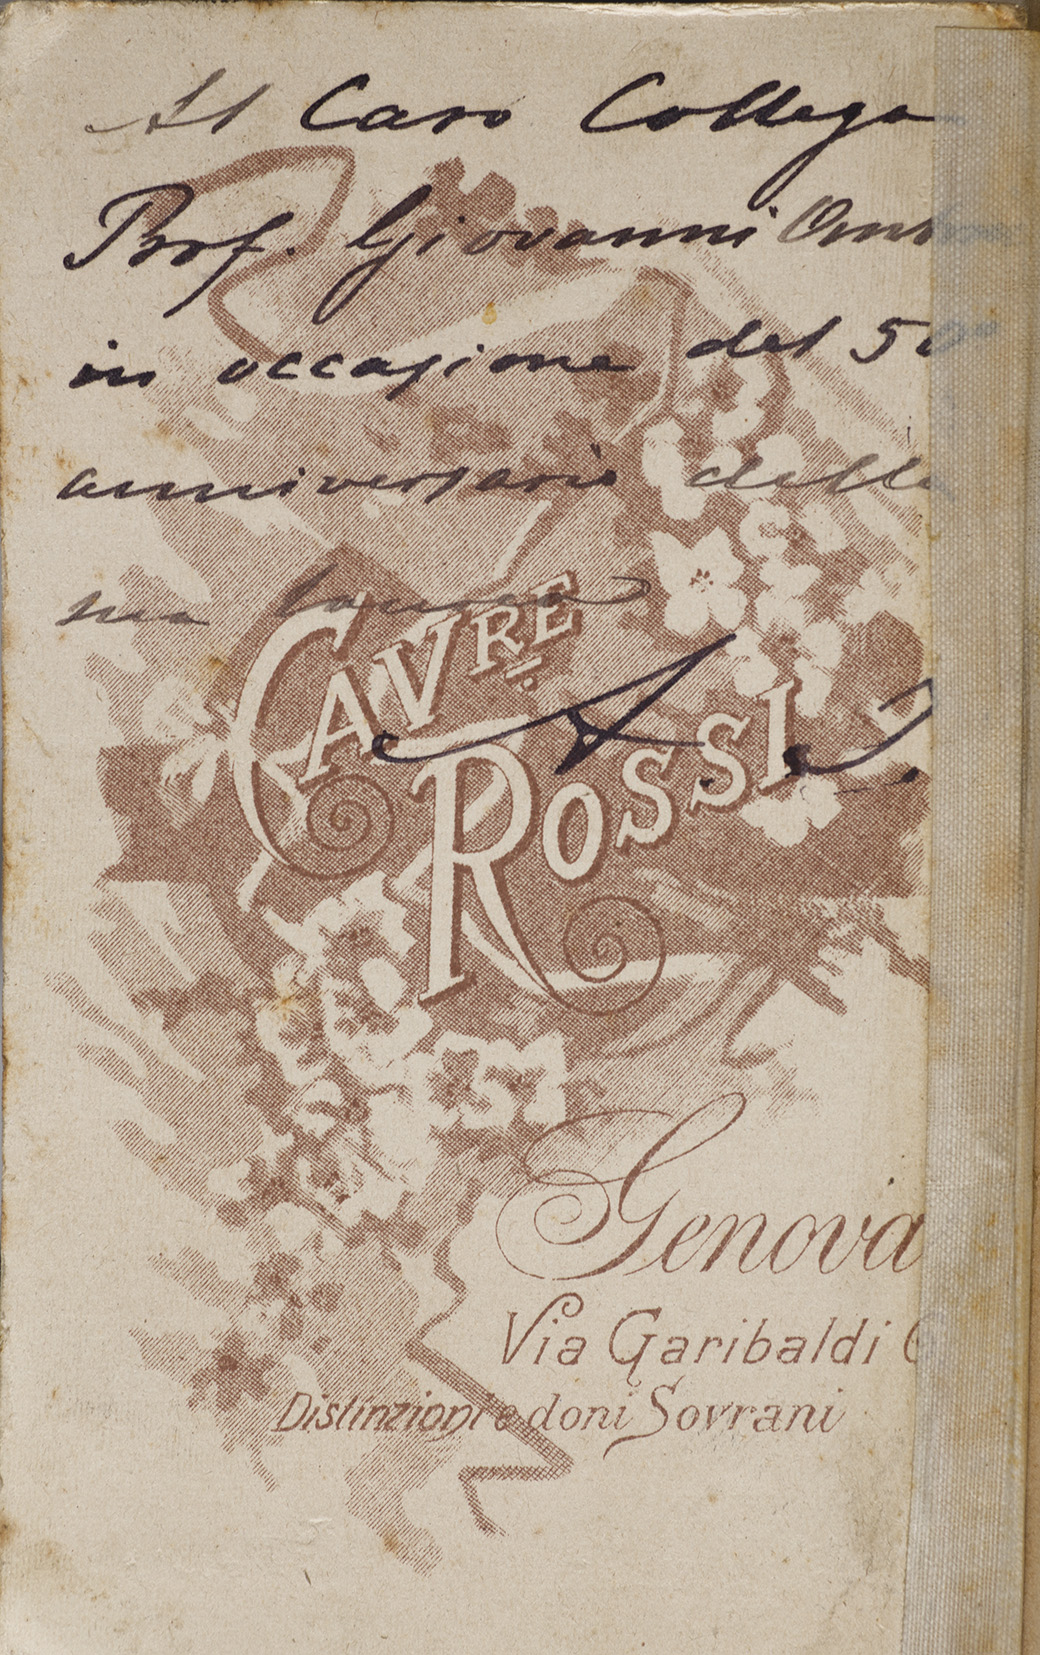 Al Caro Collega
Prof. Giovanni
in occasione del 50
anniversario della
sua laurea
CAV.RE
ROSSI
Genova
Via Garibaldi
Distinzioni e doni Sovrani